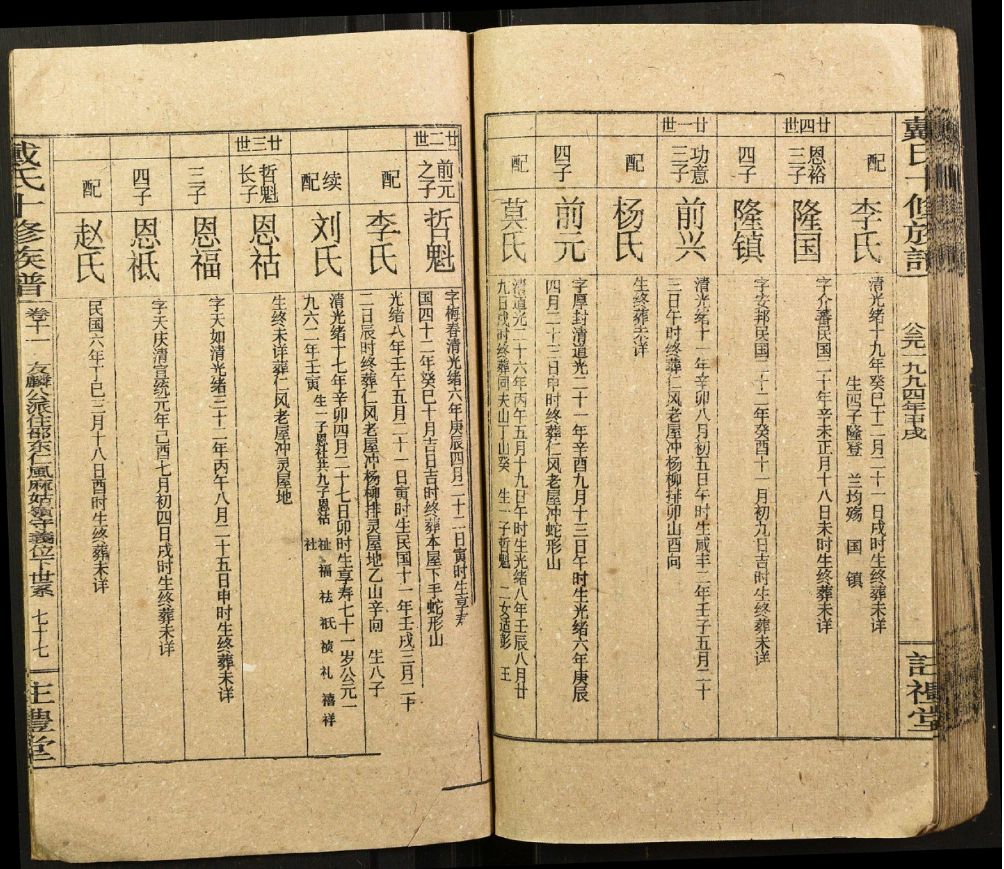 戴氏十修族谱
公元一九九四年甲戌
註礼堂
配
李氏
清光绪十九年癸巳十二月二十一日戌时生终葬未详
生四子隆登 兰均殇 国 镇
廿四世
恩裕三子
隆国
字介蕃民国二十年辛未正月十八日未时生终葬未详
四子
隆镇
字安邦民国二十二年癸酉十一月初九日吉时生终葬未详
廿一世
功意三子
前兴
清光绪十一年辛卯八月初五日午时生咸丰二年壬子五月二十
三日午时终葬仁风老屋冲杨柳排卯山酉向
配
杨氏
生终葬未详
四子
前元
字厚封清道光二十一年辛酉九月十三日午时生光绪六年庚辰
四月二十三日申时终葬仁风老屋冲蛇形山
配
莫氏
清道光二十六年丙午五月十九日午时生光绪八年壬辰八月廿
九日戌时终葬同夫山丁山癸 生一子哲魁 二女适彭 王
廿二世
前元之子
哲魁
字梅春清光绪六年庚辰四月二十二日寅时生享寿
国四十二年癸巳十月吉日吉时终葬本屋下手蛇形山
配
李氏
光绪八年壬午五月二十一日寅时生民国十一年壬戌三月二十
二日辰时终葬仁风老屋冲杨柳排灵屋地乙山辛向 生八子
续配
刘氏
清光绪十七年辛卯四月二十七日卯时生享寿七十一岁公元一
九六二年壬寅 生一子恩社共九子恩祜 祉 福 祛 祇 祯 礼 禧 祥
社
廿三世
哲魁长子
恩祜
生终未详葬仁风老屋冲灵屋地
三子
恩福
字天如清光绪三十二年丙午八月二十五日申时生终葬未详
四子
恩祇
字天庆清宣统元年己酉七月初四日戌时生终葬未详
配
赵氏
民国六年丁巳三月十八日酉时生终葬未详
戴氏十修族谱
卷十一 友麟公派住邵东仁風麻姑嶺守義位下世系 七十七
註禮堂